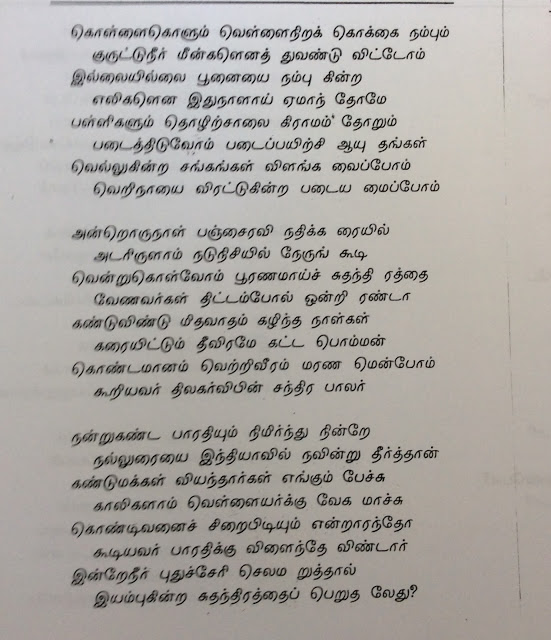 கொள்ளைகொளும் வெள்ளைநிறக் கொக்கை நம்பும்
குருட்டுநீர் மீன்களெனத் துவண்டு விட்டோம்
இல்லையில்லை பூனையை நம்பு கின்ற
எலிகளென இதுநாளாய் ஏமாந் தோமே
பள்ளிகளும் தொழிற்சாலை கிராமம் தோறும்
படைத்திடுவோம் படைப்பயிற்சி ஆயு தங்கள்
வெல்லுகின்ற சங்கங்கள் விளங்க வைப்போம்
வெறிநாயை விரட்டுகின்ற படைய மைப்போம்
அன்றொருநாள் பஞ்சைரவி நதிக்க ரையில்
அடரிருளாம் நடுநிசியில் நேருங் கூடி
வென்றுகொள்வோம் பூரணமாய்ச் சுதந்தி ரத்தை
வேணவர்கள் திட்டம்போல் ஒன்றி ரண்டா
கண்டுவிண்டு மிதவாதம் கழிந்த நாள்கள்
கரையிட்டும் தீவிரமே கட்ட பொம்மன்
கொண்டமானம் வெற்றிவீரம் மரண மென்போம்
கூறியவர் திலகர்விபின் சந்திர பாலர்
நன்றுகண்ட பாரதியும் நிமிர்ந்து நின்றே
நல்லுரையை இந்தியாவில் நவின்று தீர்த்தான்
கண்டுமக்கள் வியந்தார்கள் எங்கும் பேச்சு
காலிகளாம் வெள்ளையர்க்கு வேக மாச்சு
கொண்டிவனைச் சிறைபிடியும் என்றாரந்தோ
கூடியவர் பாரதிக்கு விளைந்தே விண்டார்
இன்றேநீர் புதுச்சேரி செலம றுத்தால்
இயம்புகின்ற சுதந்திரத்தைப் பெறுத லேது?